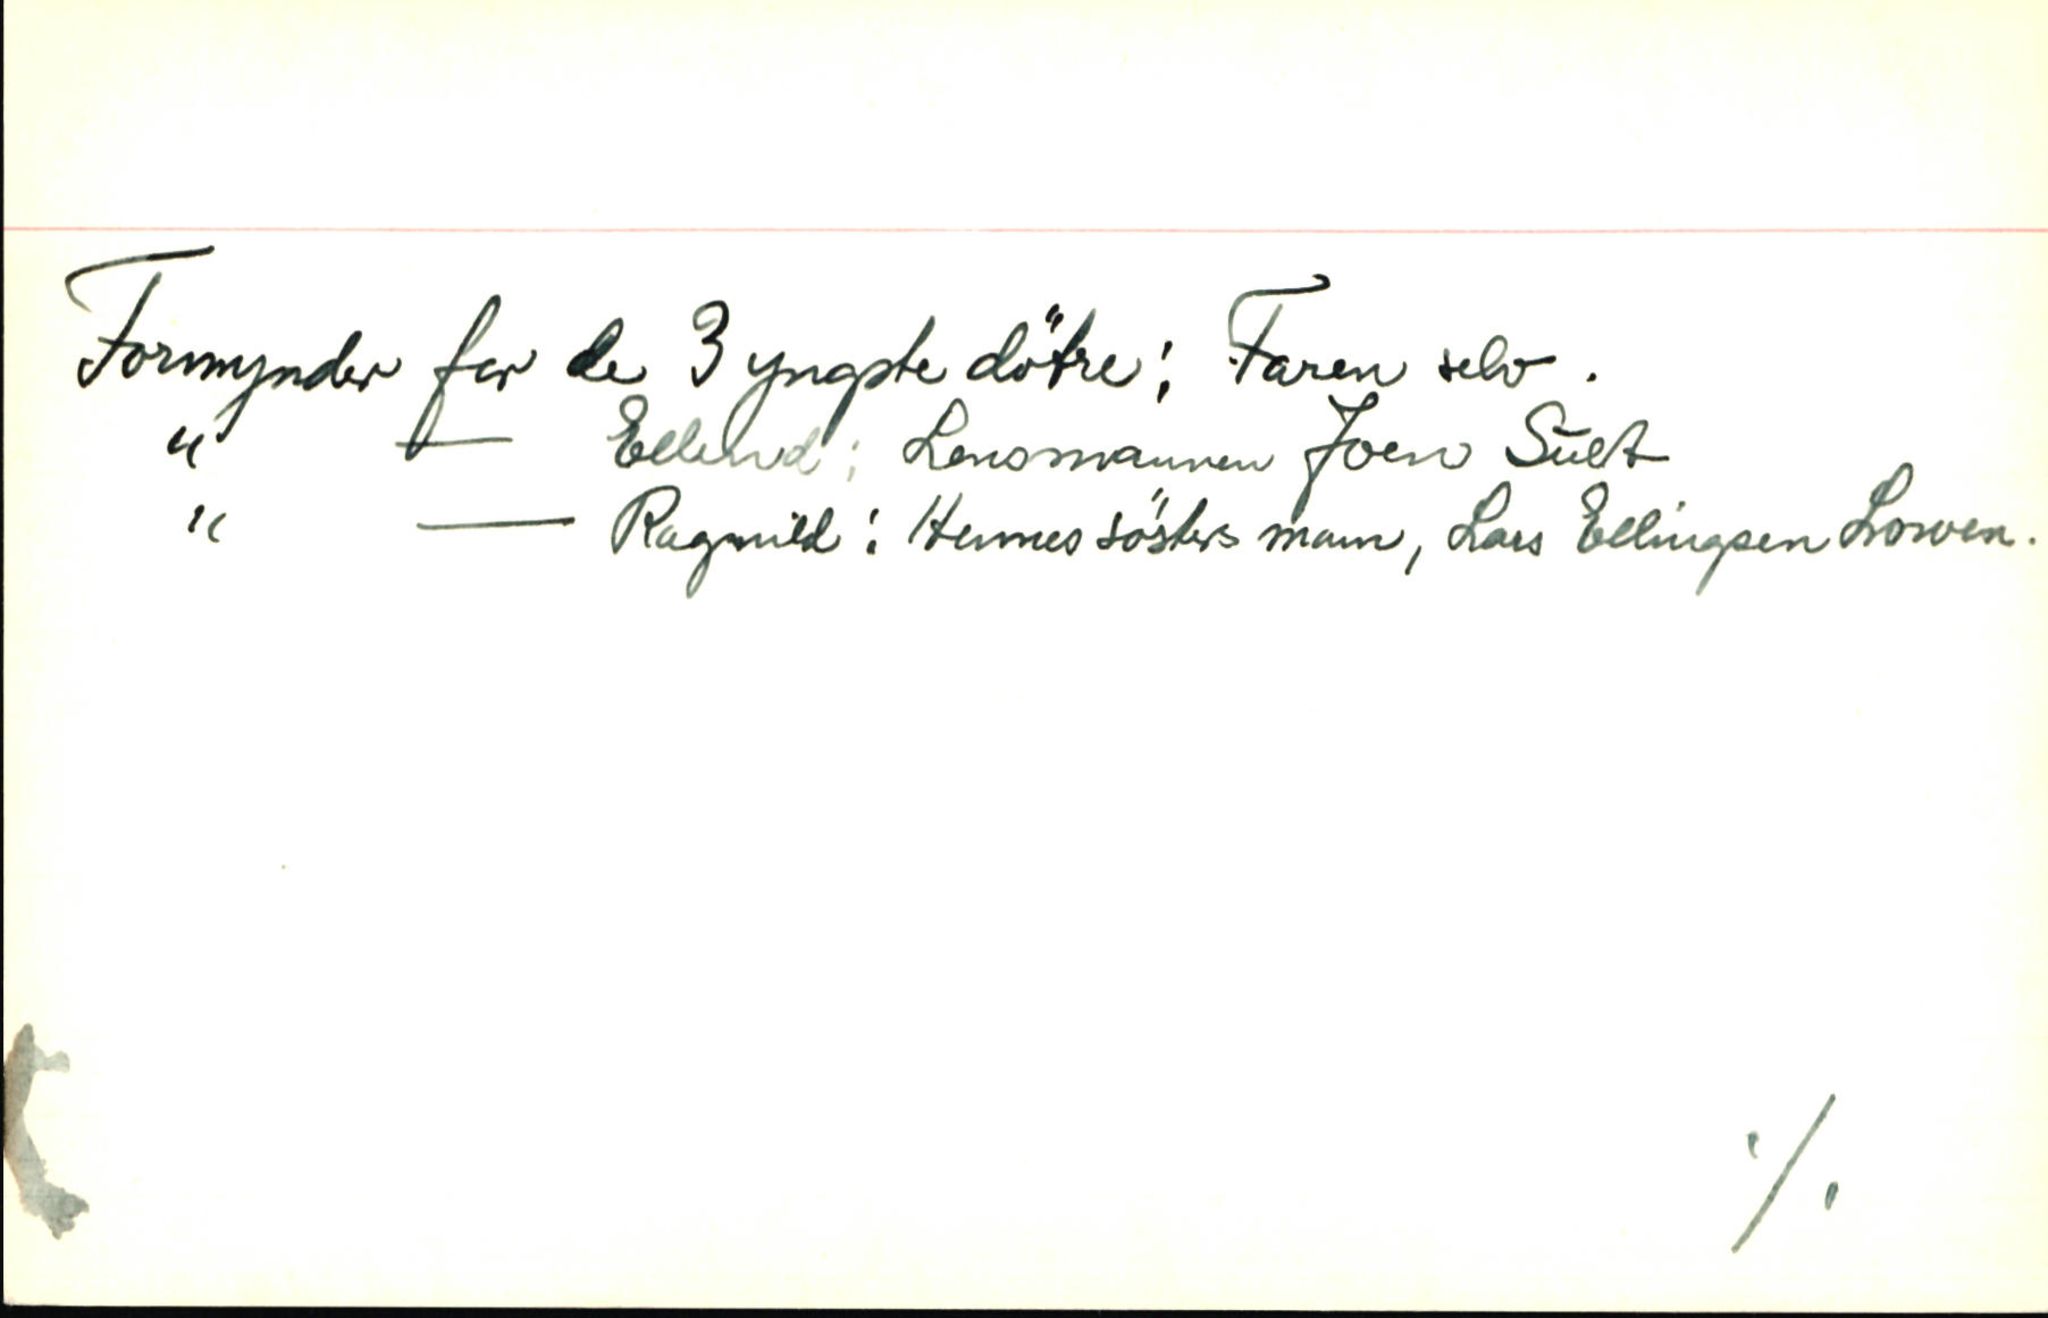 Formynder for de 3 yngste dötre: Faren selv.
" — Ellend: Lensmannen Joen Sült
" — Ragnild: Hennes sösters mann, Lars Ellingsen
·/.